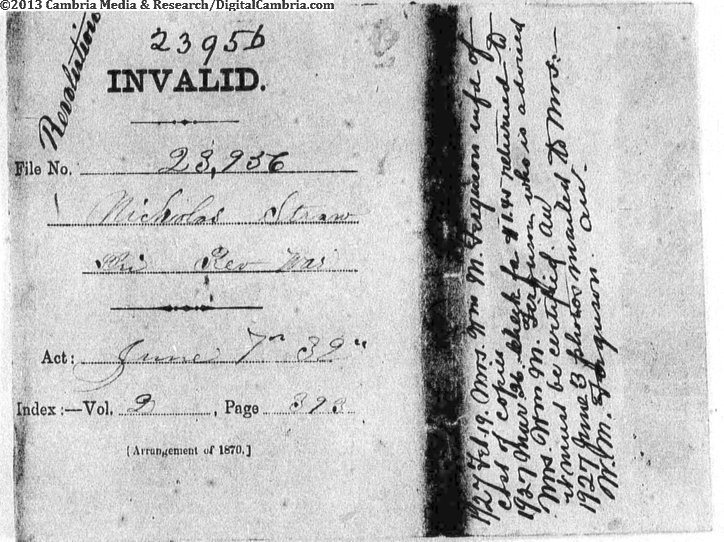 ©2013 Cambria Media & Research/DigitalCambria.com
Revolution
23956
INVALID.
File No. 23,956
Nicholas Straw
Rev War
Act: June 7" 32"
Index :—Vol. 2, Page 393
[Arrangement of 1870.]
1927 Feb 19. Mrs. Wm M. Ferguson wife of
cost of copies
1927 Mar 26. Check for $1.40 returned to
Mrs. Wm M. Ferguson, who is advised
it must be certified. aw
1927 June 3 photos mailed to Mrs.—
W. M. Ferguson. aw.